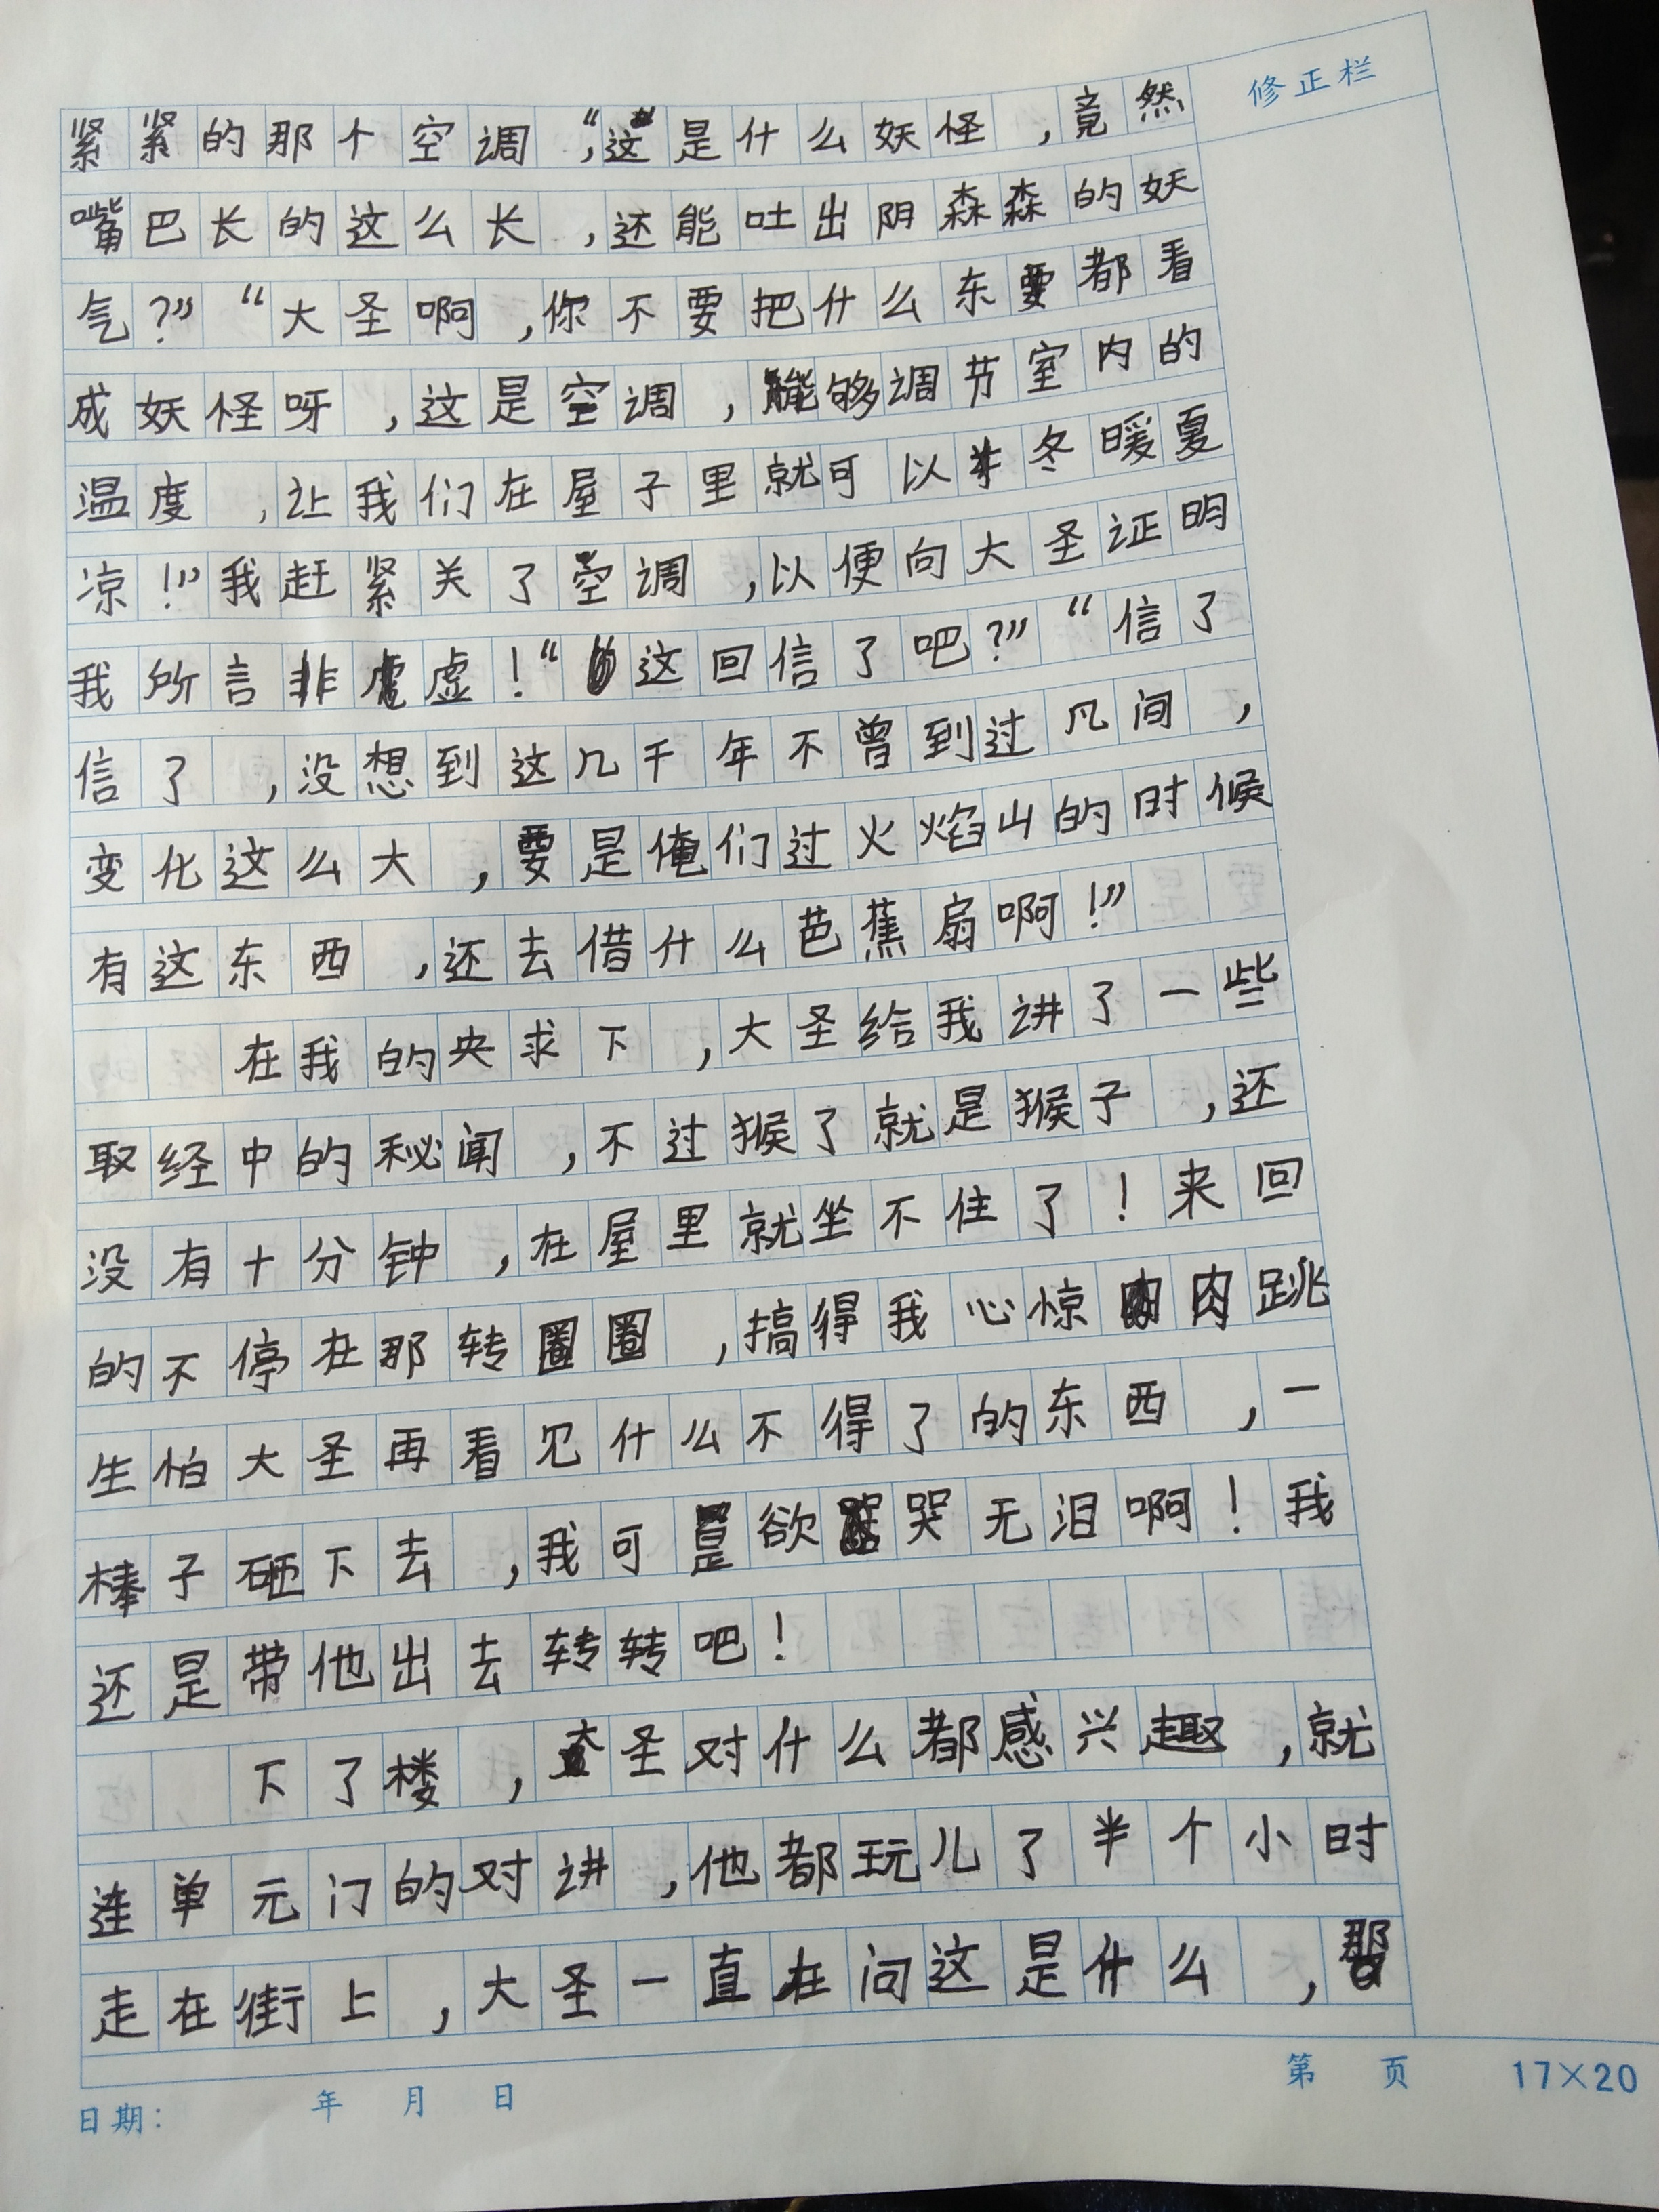 修正栏
紧紧的那个空调，“这是什么妖怪，竟然
嘴巴长的这么长，还能吐出阴森森的妖
气？”“大圣啊，你不要把什么东要都看
成妖怪呀，这是空调，能够调节室内的
温度，让我们在屋子里就可以冬暖夏
凉！”我赶紧关了空调，以便向大圣证明
我所言非虚！“这回信了吧？”“信了
信了，没想到这几千年不曾到过凡间，
变化这么大，要是俺们过火焰山的时候
有这东西，还去借什么芭蕉扇啊！”
在我的央求下，大圣给我讲了一些
取经中的秘闻，不过猴了就是猴子，还
没有十分钟，在屋里就坐不住了！来回
的不停在那转圈圈，搞得我心惊肉跳
生怕大圣再看见什么不得了的东西，一
棒子砸下去，我可是欲哭无泪啊！我
还是带他出去转转吧！
下了楼，大圣对什么都感兴趣，就
连单元门的对讲，他都玩儿了半个小时
走在街上，大圣一直在问这是什么，那
第 页 17×20
日期： 年 月 日